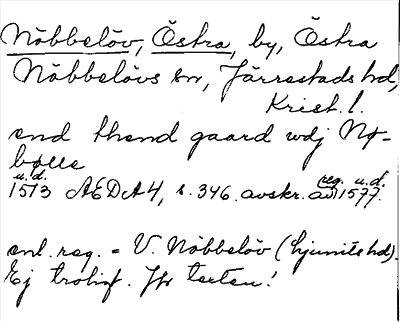 Nöbbelöv, Östra, by, Östra
Nöbbelövs sn, Järrestads hd,
Krist. l.
end thend gaard wdj Nø-
bølle
u.d. reg. u.d.
1513 AEDA4, s. 346. avskr. av 1577.
enl. reg. = V. Nöbbelöv (Ljunits hd).
Ej troligt. Jfr texten!